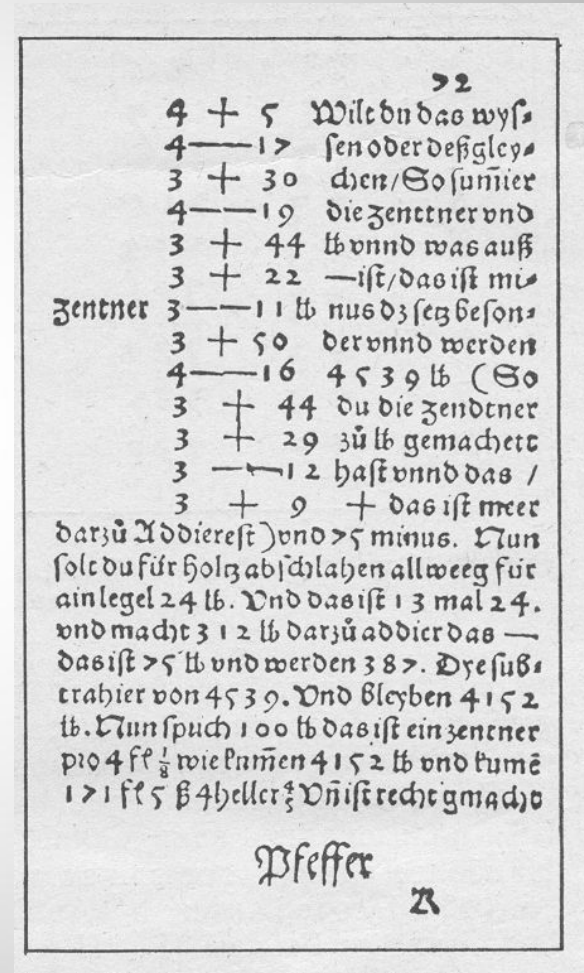 72
4 + 5 Wilt du das wyſ⸗
4 —— 17 ſen oder deßgley⸗
3 + 30 chen/ So sum̄ier
4 —— 19 die Zenttner vnd
3 + 44 lb vnnd was auß
3 + 22 — iſt/ das iſt mi⸗
Zentner 3 —— 11 lb nus dz ſetz beſon⸗
3 + 50 der vnnd werden
4 —— 16 4539 lb (So
3 + 44 du die Zendtner
3 + 29 zů lb gemachett
3 —— 12 haſt vnnd das /
3 + 9 + das iſt meer
darzů Addiereſt) vnd 75 minus. Nun
ſolt du für Holtz abſchlahen allweeg für
ain legel 24 lb. Vnd das iſt 13 mal 24.
vnd macht 312 lb darzů addier das —
das iſt 75 lb vnd werden 387. Dye ſub⸗
trahier von 4539. Vnd bleyben 4152
lb. Nun ſpuch 100 lb das iſt ein zentner
pro 4 fl ⅛ wie kum̄en 4152 lb vnd kumē
171 fl 5 ß 4 heller ⅘ Vn̄ iſt recht gmacht
Pfeffer
R